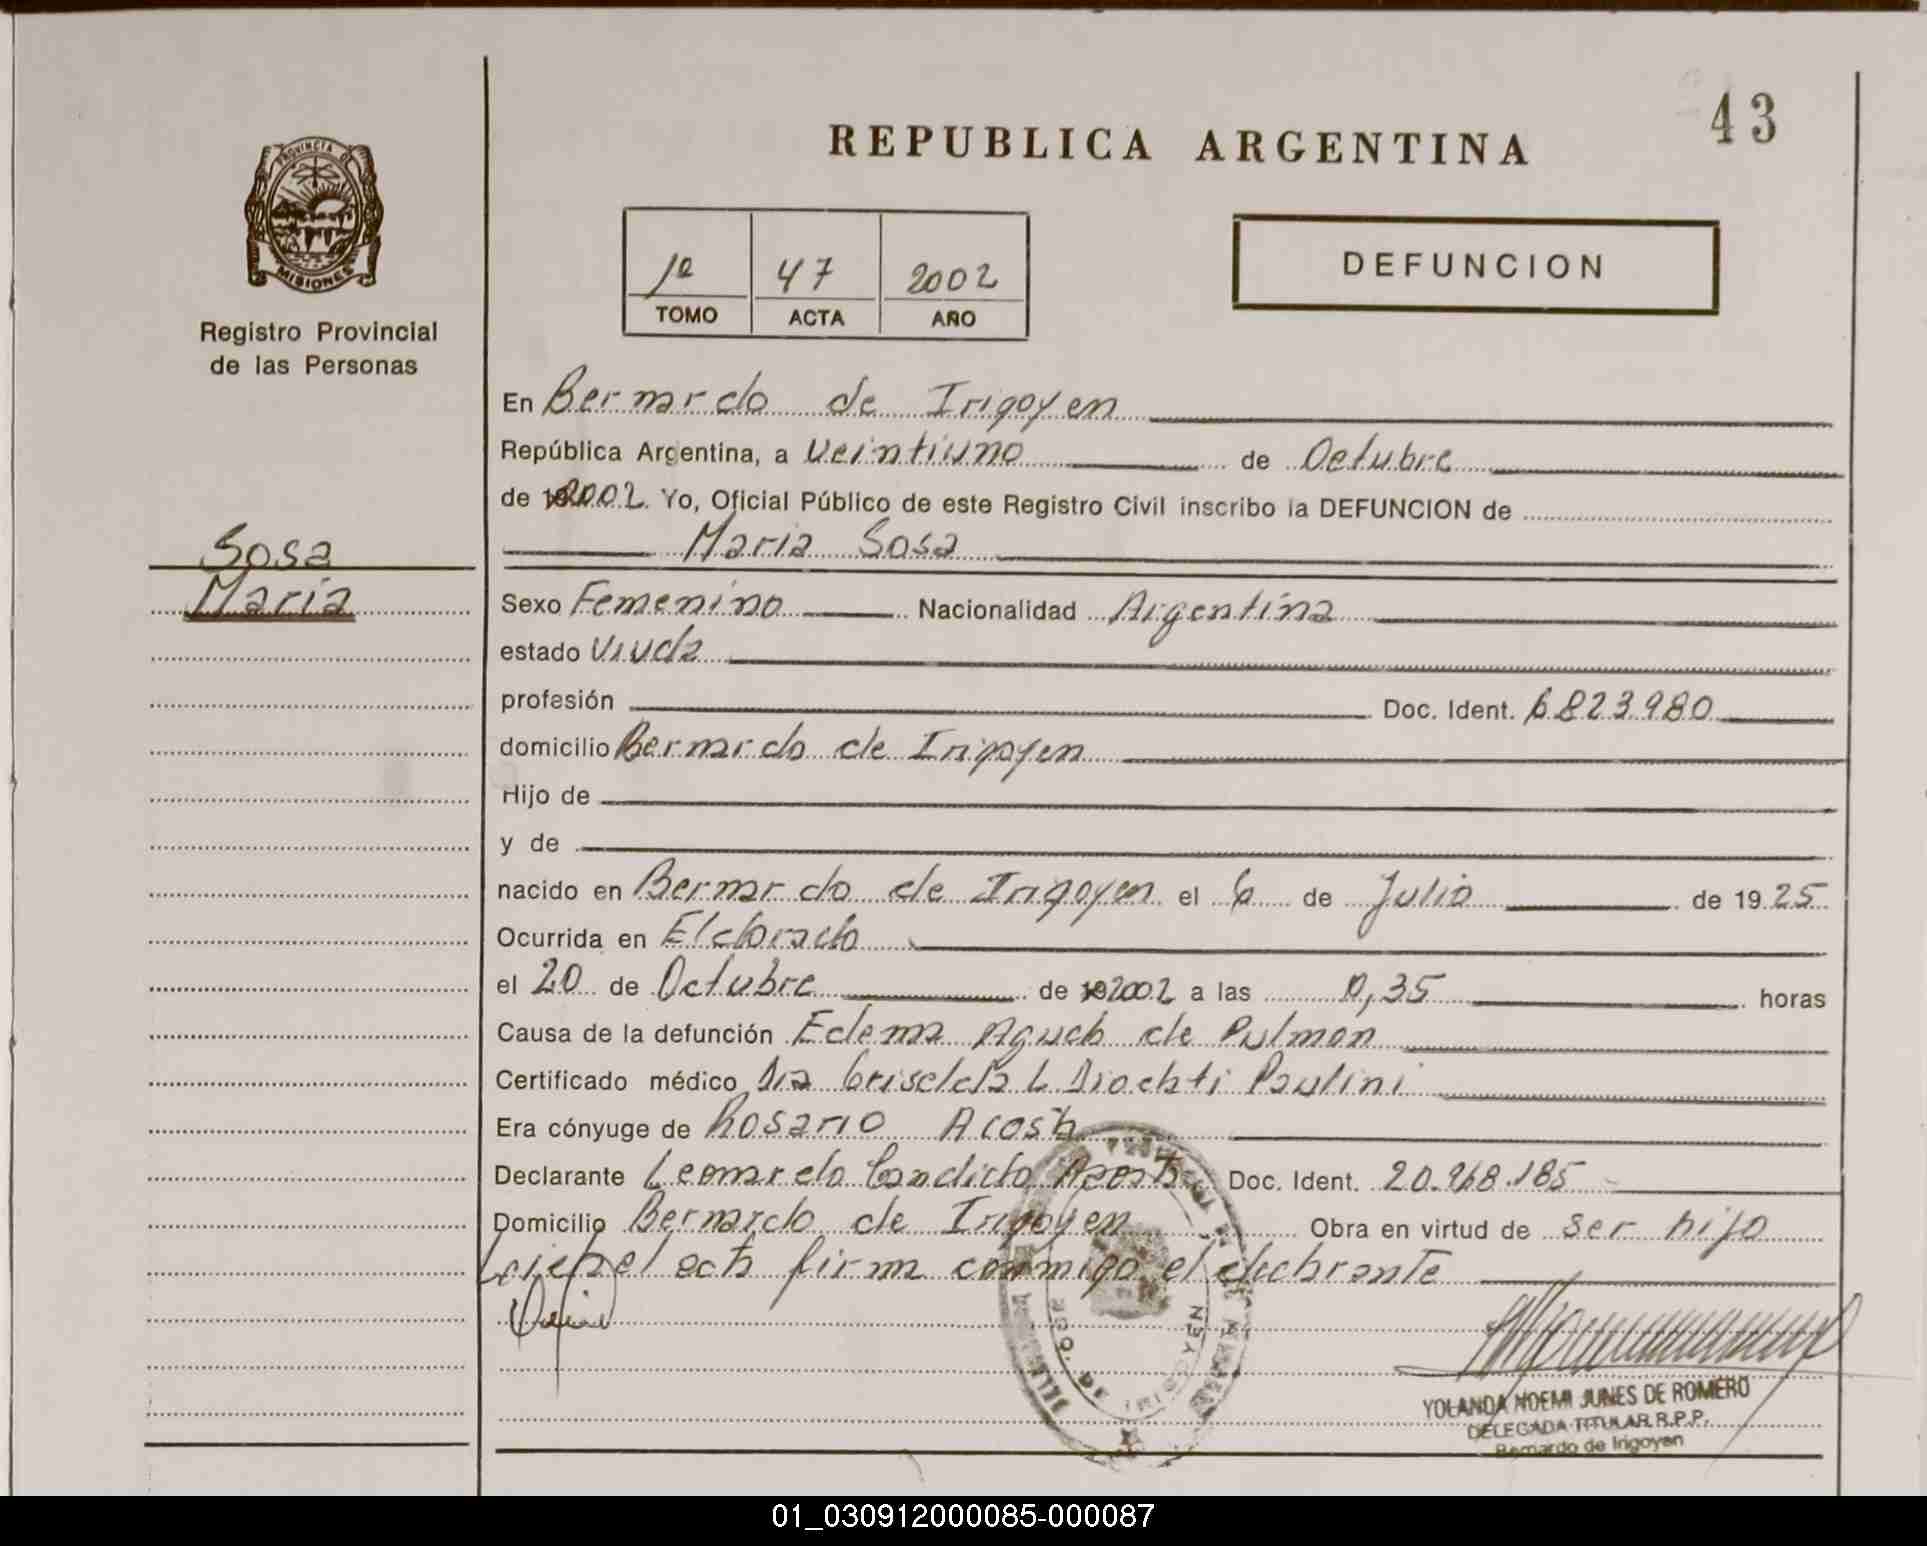 43
REPUBLICA ARGENTINA
PROVINCIA DE
MISIONES
Registro Provincial
de las Personas
1º 47 2002
TOMO ACTA AÑO
DEFUNCION
En Bernardo de Irigoyen
República Argentina, a Veintiuno de Octubre
de 2002 Yo, Oficial Público de este Registro Civil inscribo la DEFUNCION de
Maria Sosa
Sosa
Maria
Sexo Femenino Nacionalidad Argentina
estado Viuda
profesión Doc. Ident. 6.823.980
domicilio Bernardo de Irigoyen
Hijo de
y de
nacido en Bernardo de Irigoyen el 6 de Julio de 1925
Ocurrida en Eldorado
el 20 de Octubre de 2002 a las 0,35 horas
Causa de la defunción Edema Agudo de Pulmon
Certificado médico Dra Griselda L Paulini
Era cónyuge de Rosario Acosta
Declarante Leonardo Candido Acosta Doc. Ident. 20.968.185
Domicilio Bernardo de Irigoyen Obra en virtud de ser hijo
Leida el acta firma conmigo el declarante
YOLANDA NOEMI JUNES DE ROMERO
DELEGADA TITULAR R.P.P.
Bernardo de Irigoyen
01_030912000085-000087